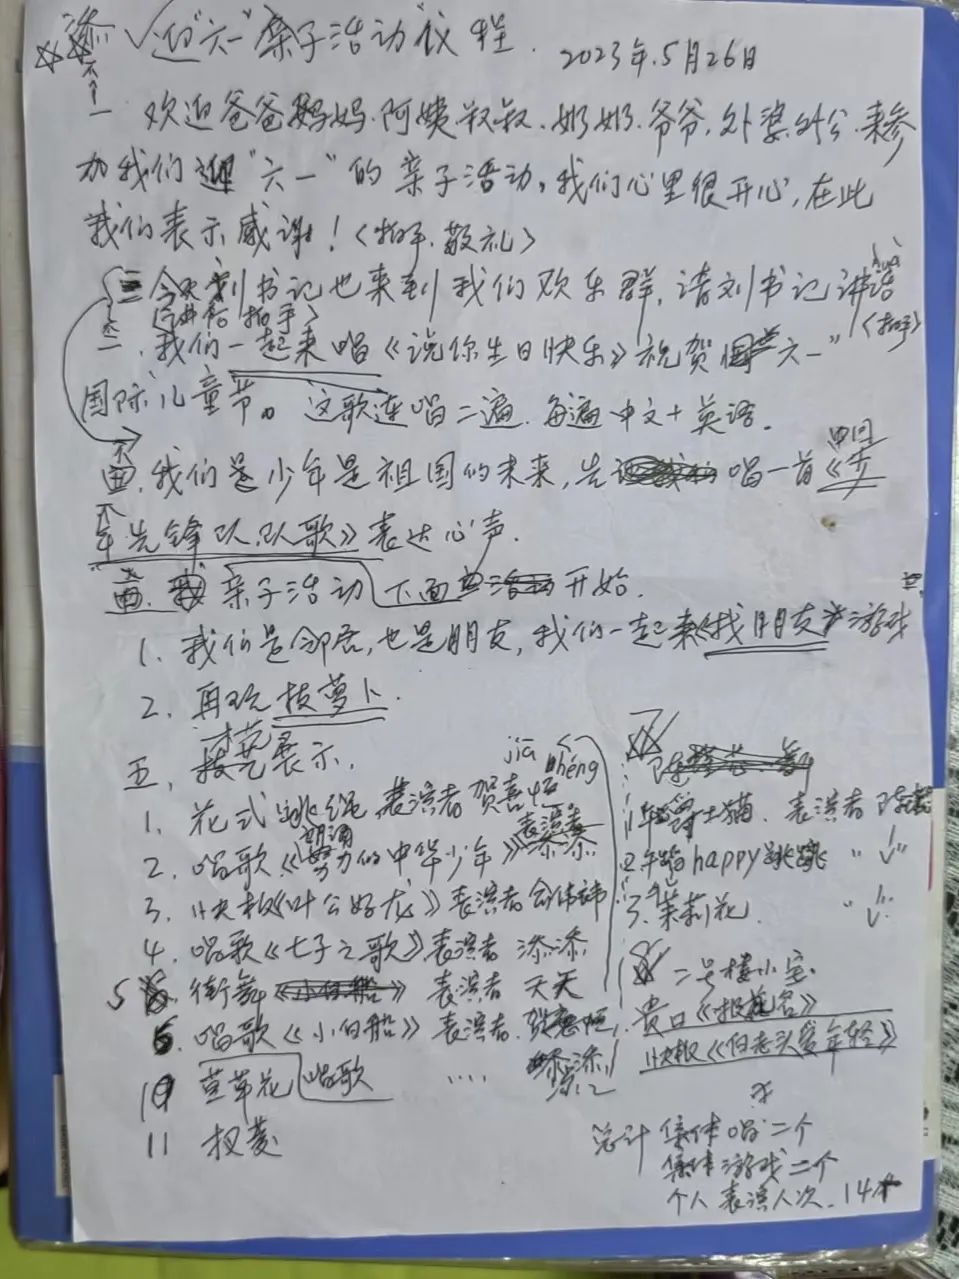 添 迎"六一"亲子活动议程. 2023年.5月26日
一 欢迎爸爸妈妈.阿姨叔叔.奶奶.爷爷.外婆.外公.来参
加我们迎"六一"的亲子活动,我们心里很开心,在此
我们表示感谢!<拍手.敬礼>
三 今天刘书记也来到我们欢乐群,请刘书记讲话 huà
拍手> <拍手>
二.我们一起来唱《说你生日快乐》祝贺 六一"
国际儿童节。这歌连唱二遍.每遍中文+英语.
我们是少年是祖国的未来,先 唱一首《中国少
年先锋队.队歌》表达心声.
亲子活动 下面 开始.
1. 我们是邻居,也是朋友,我们一起来《找朋友》游戏
2. 再玩拔萝卜.
五. 才艺展示.
jiā héng
1. 花式跳绳 表演者 贺嘉恒
2. 唱歌《朗诵 的中华少年》表演者 添添
3. 快板《叶公好龙》表演者 俞伟祎
4. 唱歌《七子之歌》表演者 添添
5 街舞《小白船》 表演者 天天
6. 唱歌《小白船》表演者. 贺嘉恒.
10 荁草花 唱歌 .... 添添
11 拔萝
1 士猫. 表演者 陈
2 happy跳跳 " √"
3. 茉莉花. " √"
二号楼小宝.
贯口《报花名》
快板《伯老头爱年轻》
总计 集体唱 二个
集体游戏二个
个人表演人次.14个